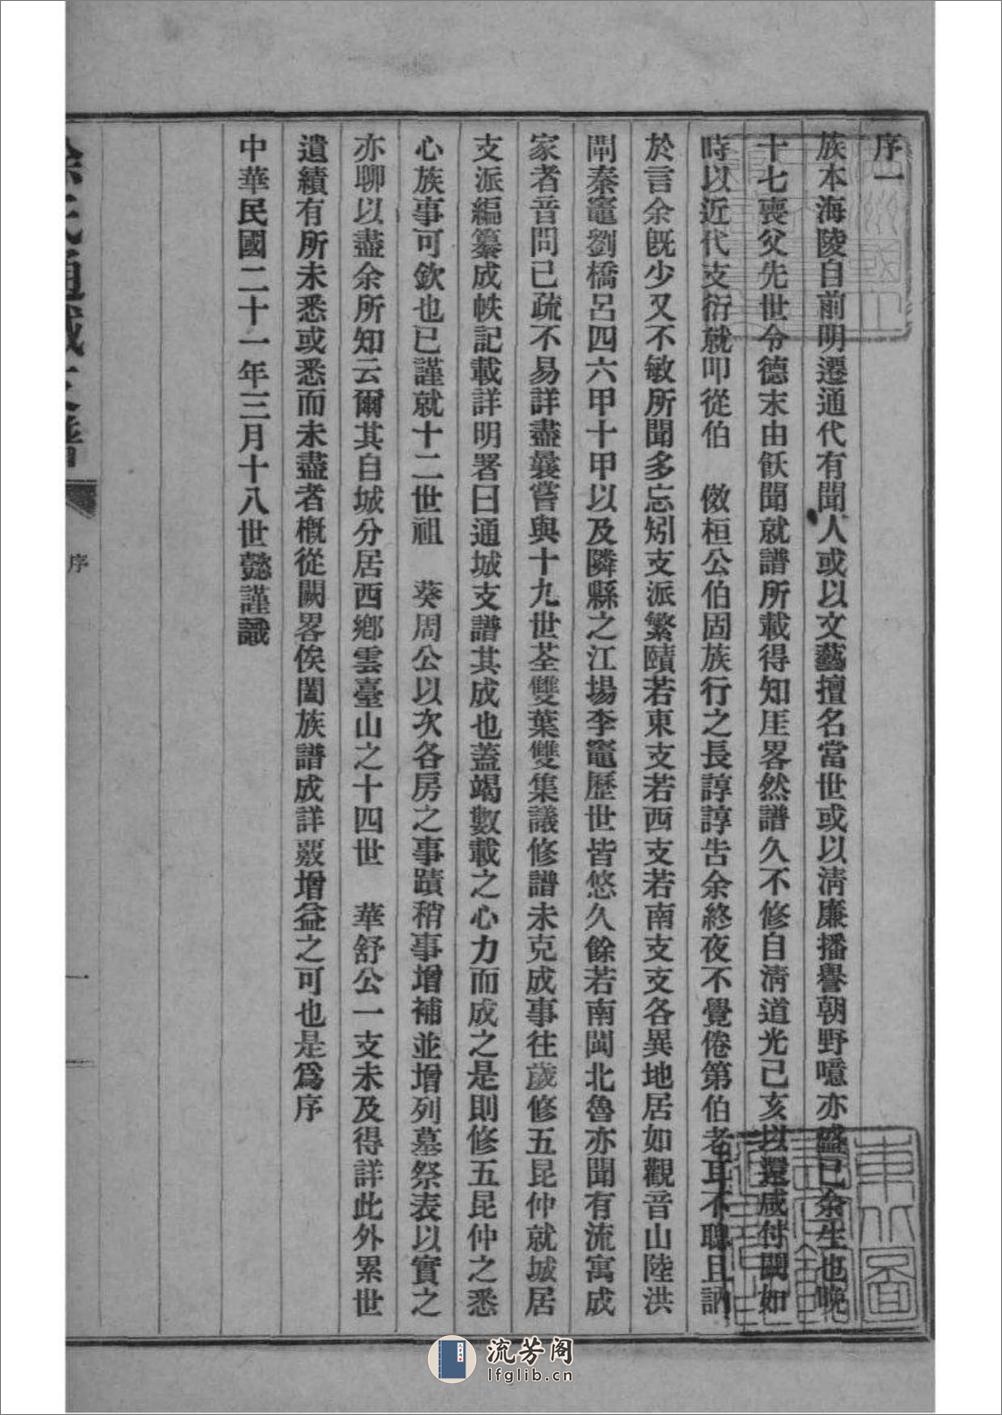 序一
族本海陵自前明遷通代有聞人或以文藝擅名當世或以清廉播譽朝野噫亦盛已余生也晚
十七喪父先世令德末由飫聞就譜所載得知厓畧然譜久不修自清道光己亥以還咸付闕如
時以近代支衍就叩從伯 儆桓公伯固族行之長諄諄告余終夜不覺倦第伯老耳不聰且訥
於言余旣少又不敏所聞多忘矧支派繁賾若東支若西支若南支支各異地居如觀音山陸洪
閘秦竈劉橋呂四六甲十甲以及隣縣之江場李竈歷世皆悠久餘若南閩北魯亦聞有流寓成
家者音問已疏不易詳盡曩嘗與十九世荃雙葉雙集議修譜未克成事往歲修五昆仲就城居
支派編纂成帙記載詳明署曰通城支譜其成也蓋竭數載之心力而成之是則修五昆仲之悉
心族事可欽也已謹就十二世祖 葵周公以次各房之事蹟稍事增補並增列墓祭表以實之
亦聊以盡余所知云爾其自城分居西鄉雲臺山之十四世 華舒公一支未及得詳此外累世
遺績有所未悉或悉而未盡者槪從闕畧俟闔族譜成詳覈增益之可也是爲序
中華民國二十一年三月十八世懿謹識
氏通城支譜
序
一
東圖
流芳阁
lfglib.cn